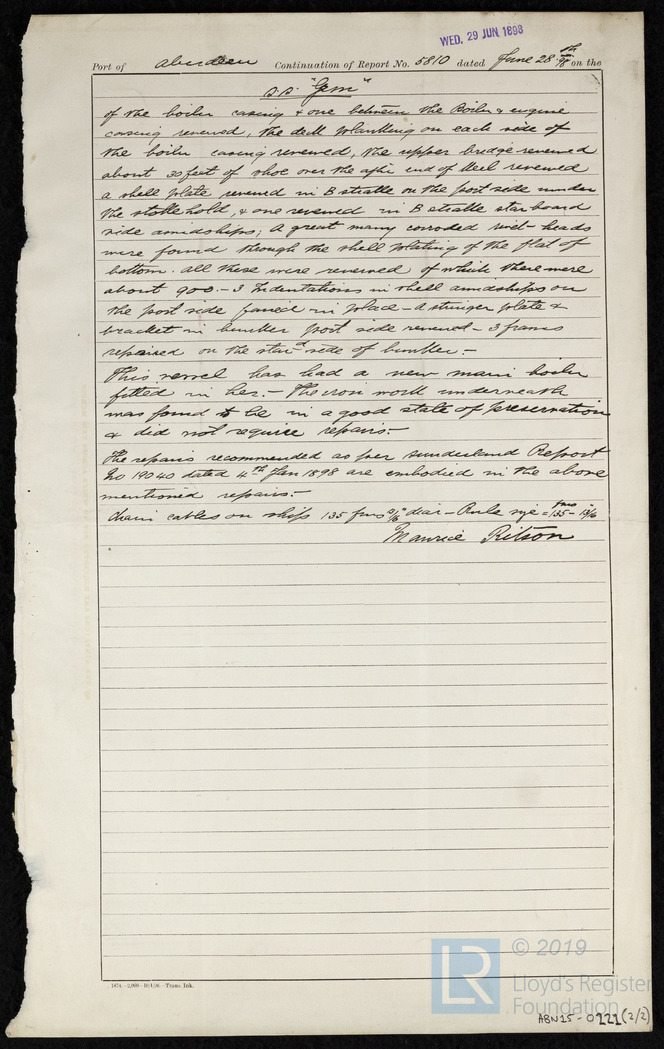 WED. 29 JUN. 1898
Port of Aberdeen Continuation of Report No. 5810 dated June 28th 98 on the
S.S. "Gem"
of the boiler casing & one between the Boiler & engine
casing renewed, the deck planking on each side of
the boiler casing renewed, the upper bridge renewed
about 30 feet of shoe over the after end of keel renewed
a shell plate renewed in B strake on the port side under
the stokehold, & one renewed in B strake starboard
side amidships; A great many corroded rivet-heads
were found through the shell plating of the flat of
bottom. all these were renewed of which there were
about 900.- 3 Indentations in shell amidships on
the port side faired in place - a stringer plate &
bracket in bunker port side renewed - 3 frames
repaired on the stard side of bunker.-
This vessel has had a new main boiler
fitted in her.- The iron work underneath
was found to be in a good state of preservation
& did not require repairs.-
The repairs recommended as per Sunderland Report
No 19040 dated 4th Jan 1898 are embodied in the above
mentioned repairs.-
Chain cables on ship 135 fms /16 diar - Rule = 135 fms -
Maurice Ritson
1874.-2,000- -Trans. Ink.
LR
© 2019
Lloyd's Register
Foundation
ABN25-0221 (2/2)